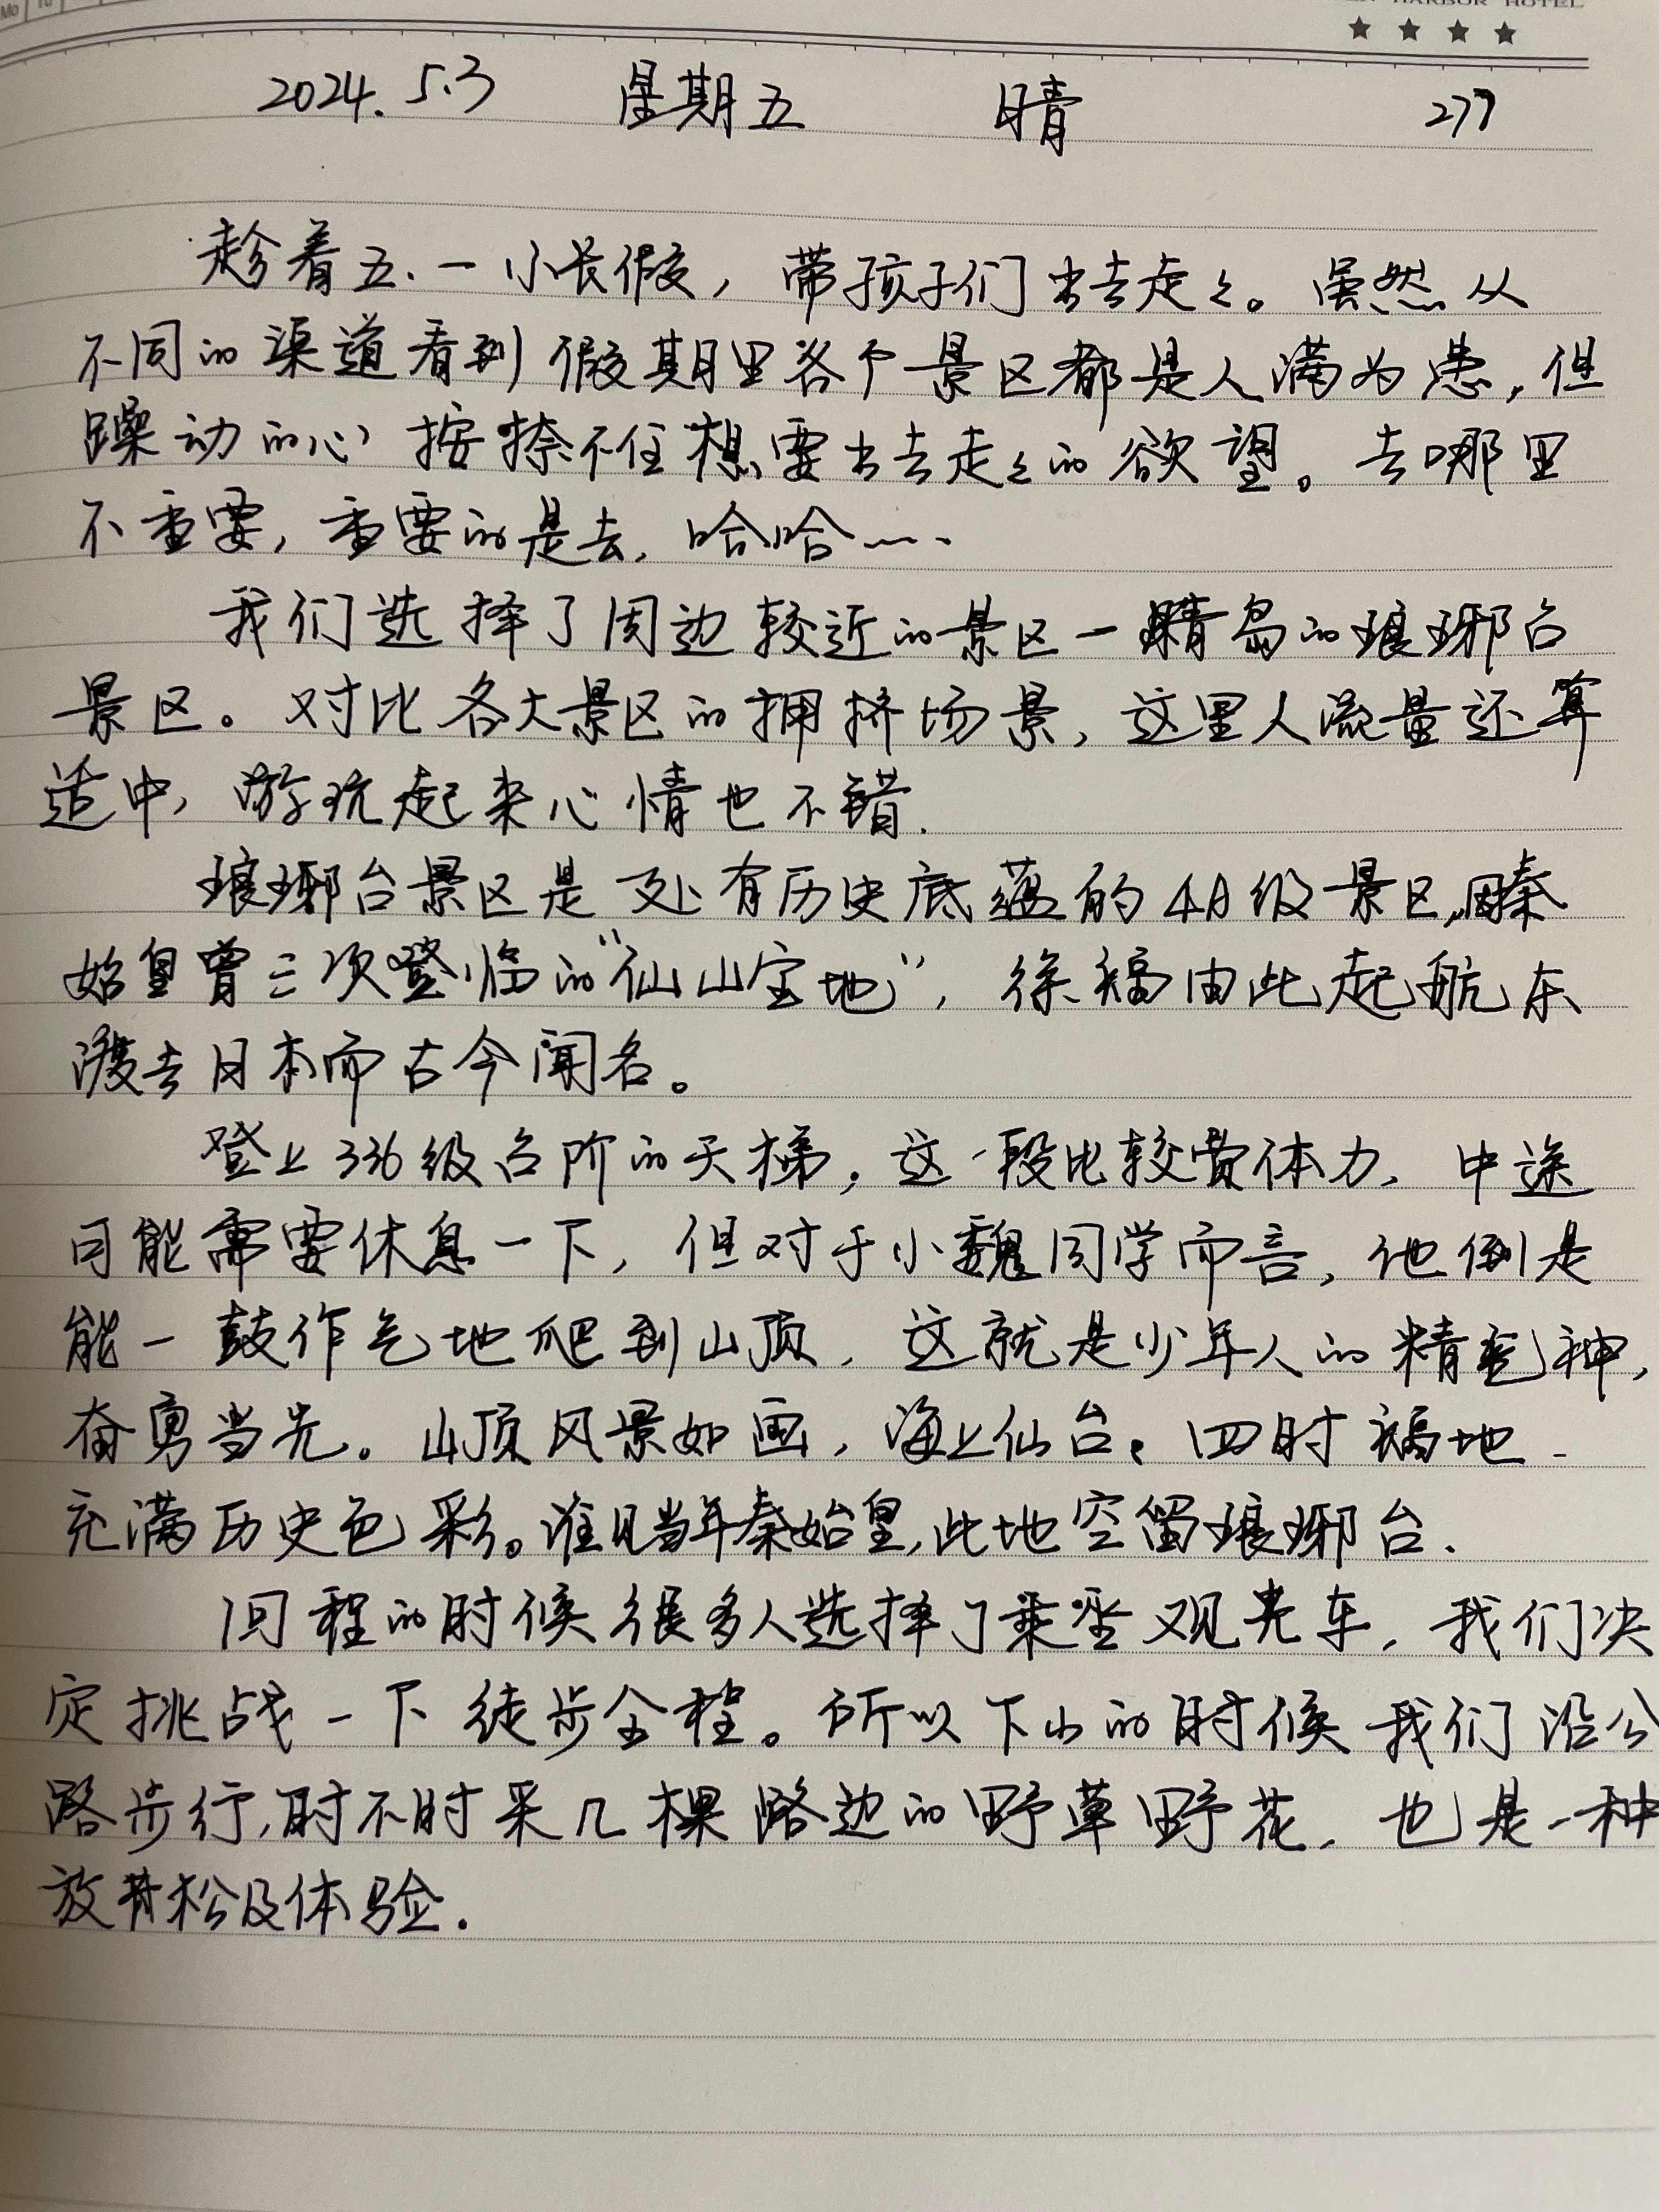 Mo Tu
HARBOR HOTEL
2024.5.3 星期五 晴 277
趁着五.一小长假，带孩子们出去走々。虽然从
不同的渠道看到假期里各个景区都是人满为患，但
躁动的心按捺不住想要出去走々的欲望。去哪里
不重要，重要的是去，哈哈……
我们选择了周边较近的景区一青岛的琅琊台
景区。对比各大景区的拥挤场景，这里人流量还算
适中，游玩起来心情也不错.
琅琊台景区是处有历史底蕴的4A级景区,因秦
始皇曾三次登临的“仙山宝地”，徐福由此起航东
渡去日本而古今闻名。
登上336级台阶的天梯，这一段比较费体力，中途
可能需要休息一下，但对于小魏同学而言，他倒是
能一鼓作气地爬到山顶，这就是少年人的精气神，
奋勇当先。山顶风景如画，海上仙台，四时福地-
充满历史色彩。谁见当年秦始皇,此地空留琅琊台.
回程的时候很多人选择了乘坐观光车，我们决
定挑战一下徒步全程。所以下山的时候我们沿公
路步行,时不时采几棵路边的野草野花，也是一种
放松及体验.